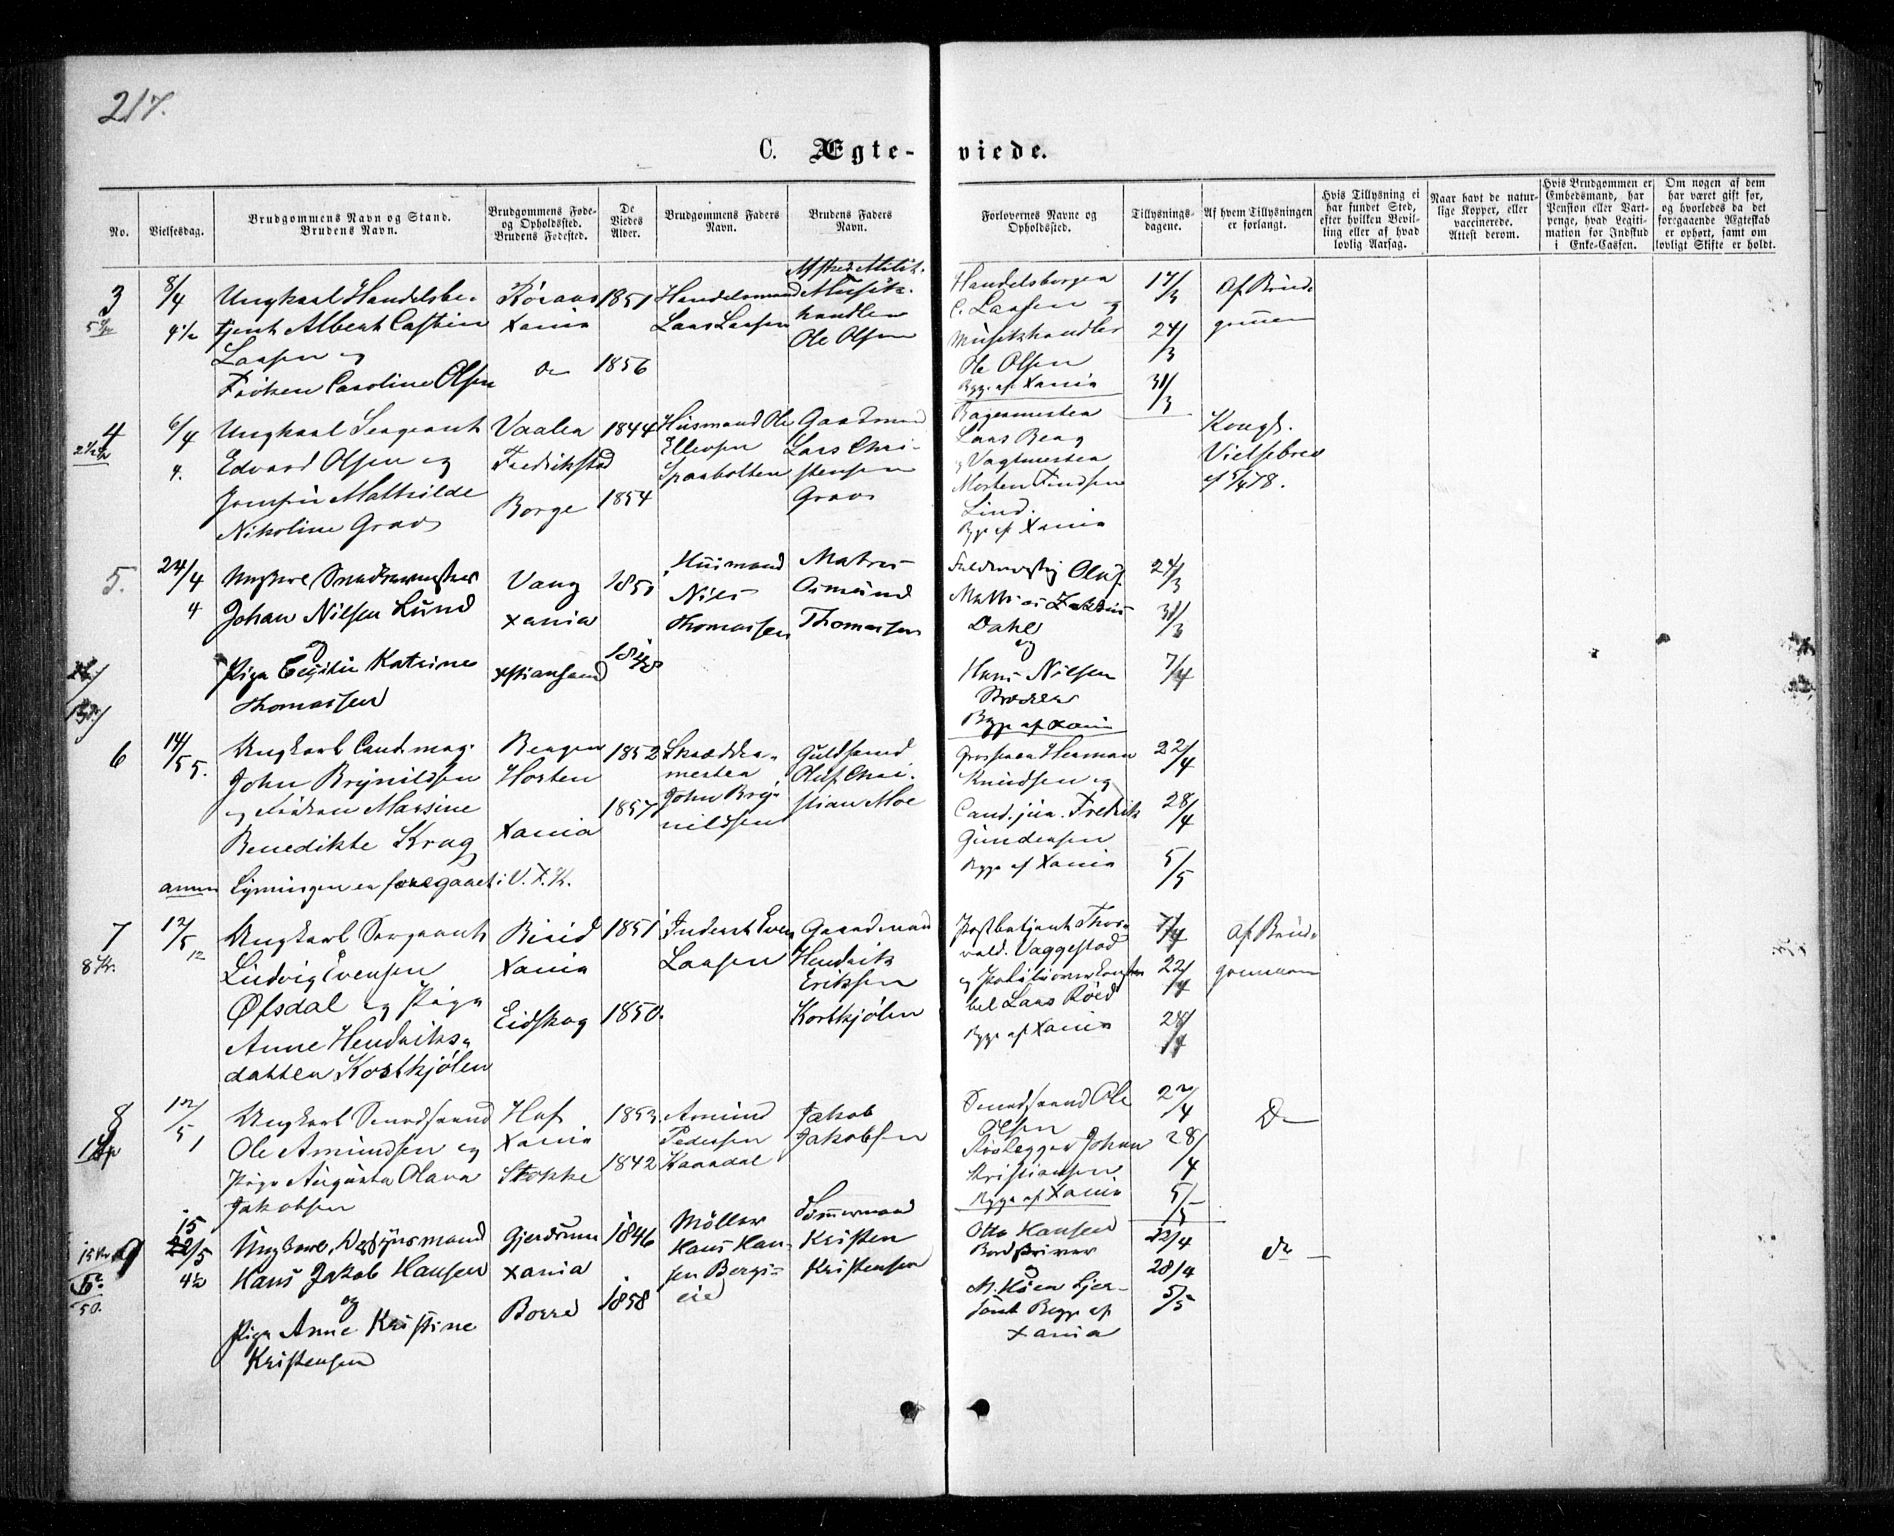 217.
C. Ægte- viede.
No.
Vielsesdag.
Brudgommens Navn og Stand.
Brudens Navn.
Brudgommens Føde-
og Opholdssted.
Brudens Fødested.
De
Viedes
Alder.
Brudgommens Faders
Navn.
Brudens Faders
Navn.
Forlovernes Navne og
Opholdssted.
Tillysnings-
dagene.
Af hvem Tillysningen
er forlangt.
Hvis Tillysning ei
har fundet Sted,
efter hvilken Bevil-
ling eller af hvad
lovlig Aarsag.
Naar havt de natur-
lige Kopper, eller
vaccinerede.
Attest derom.
Hvis Brudgommen er
Embedsmand, har
Pension eller Vart-
penge, hvad Legiti-
mation for Indskud
i Enke-Cassen.
Om nogen af dem
har været gift før,
og hvorledes da det
foregaaende Ægteskab
er ophørt, samt om
lovligt Skifte er holdt.
3
8/4
4 1/2
Ungkarl Handelsbe-
tjent Albert
Larsen og
Frøken Caroline Olsen
Røraas
Xania
do
1851
1856
Handelsmand
Lars Larsen
Musik-
handler
Ole Olsen
Handelsborger
C. Larsen og
Musikhandler
Ole Olsen
Begge af Xania
17/3
24/3
31/3
Af Brud-
gommen
4
6/4
4.
Ungkarl Sergeant
Edvard Olsen og
Jomfru Mathilde
Nikoline Graver
Vaaler
Fredrikstad
Borge
1844
1854
Husmand Ole
Ellevsen
Gaardmand
Lars Chri-
stensen
Bagermester
Lars Berg
og Vagtmester
Morten Knudsen
Lind.
Begge af Xania
Kongl.
Vielsebrev
af 5/4 78.
5.
24/4
4
Ungkarl Snedkermester
Johan Nilsen Lund
og
Pige Cecilie Katrine
Thomassen
Vang
Xania
Xstiansand
1851
1848
Husmand
Nils
Thomassen
Matros
Osmund
Thomassen
Oluf
Dahl
og
Hans Nilsen
Begge af Xania
24/3
31/3
7/4
6
14/5
5.
Ungkarl Cand. mag.
John Brynildsen
og Frøken Marsine
Benedikte Krag
Bergen
Horten
Xania
1852
1857
Skrædder-
mester
John Bry-
nildsen
Guldsmed
Oluf Chri-
stian Moe
Grosserer Herman
Knudsen og
Cand. jur. Fredrik
Gundersen
Begge af Xania
22/4
28/4
5/5
Lysningen er foregaaet i V. F. K.
7
12/5
12
8 Kr.
Ungkarl Sergeant
Ludvig Evensen
Øfsdal og Pige
Anne Hendriks-
datter Kortkjølen
Birid
Xania
Eidskog
1851
1850.
Inderst Even
Larsen
Gaardmand
Hendrik
Eriksen
Kortkjølen
Postbetjent Thor-
vald Vaggestad
bel Lars Röed
Begge af Xania
22/4
28/4
Af Brud-
gommen
8
12/5
1
Ungkarl Smedsvend
Ole Amundsen og
Pige Augusta Olava
Jakobsen
Hof
Xania
Stokke
1853
1842
Amund
Pedersen
Jakob
Jakobsen
Smedsvend Ole
Olsen
Johan
Kristiansen
Begge af Xania
28/4
5/5
Do
9
15
22/5
4 1/2
50.
Ungkarl
Hans Jakob Hansen
og
Pige Anne Kristine
Kristensen
Gjerdrum
Xania
Borre
1846
1858
Möller
Hans Han-
sen Bergs-
eie
Tömmermand
Kristen
Kristensen
Otto Hansen
og
Begge af
Xania
22/4
28/4
5/5
do